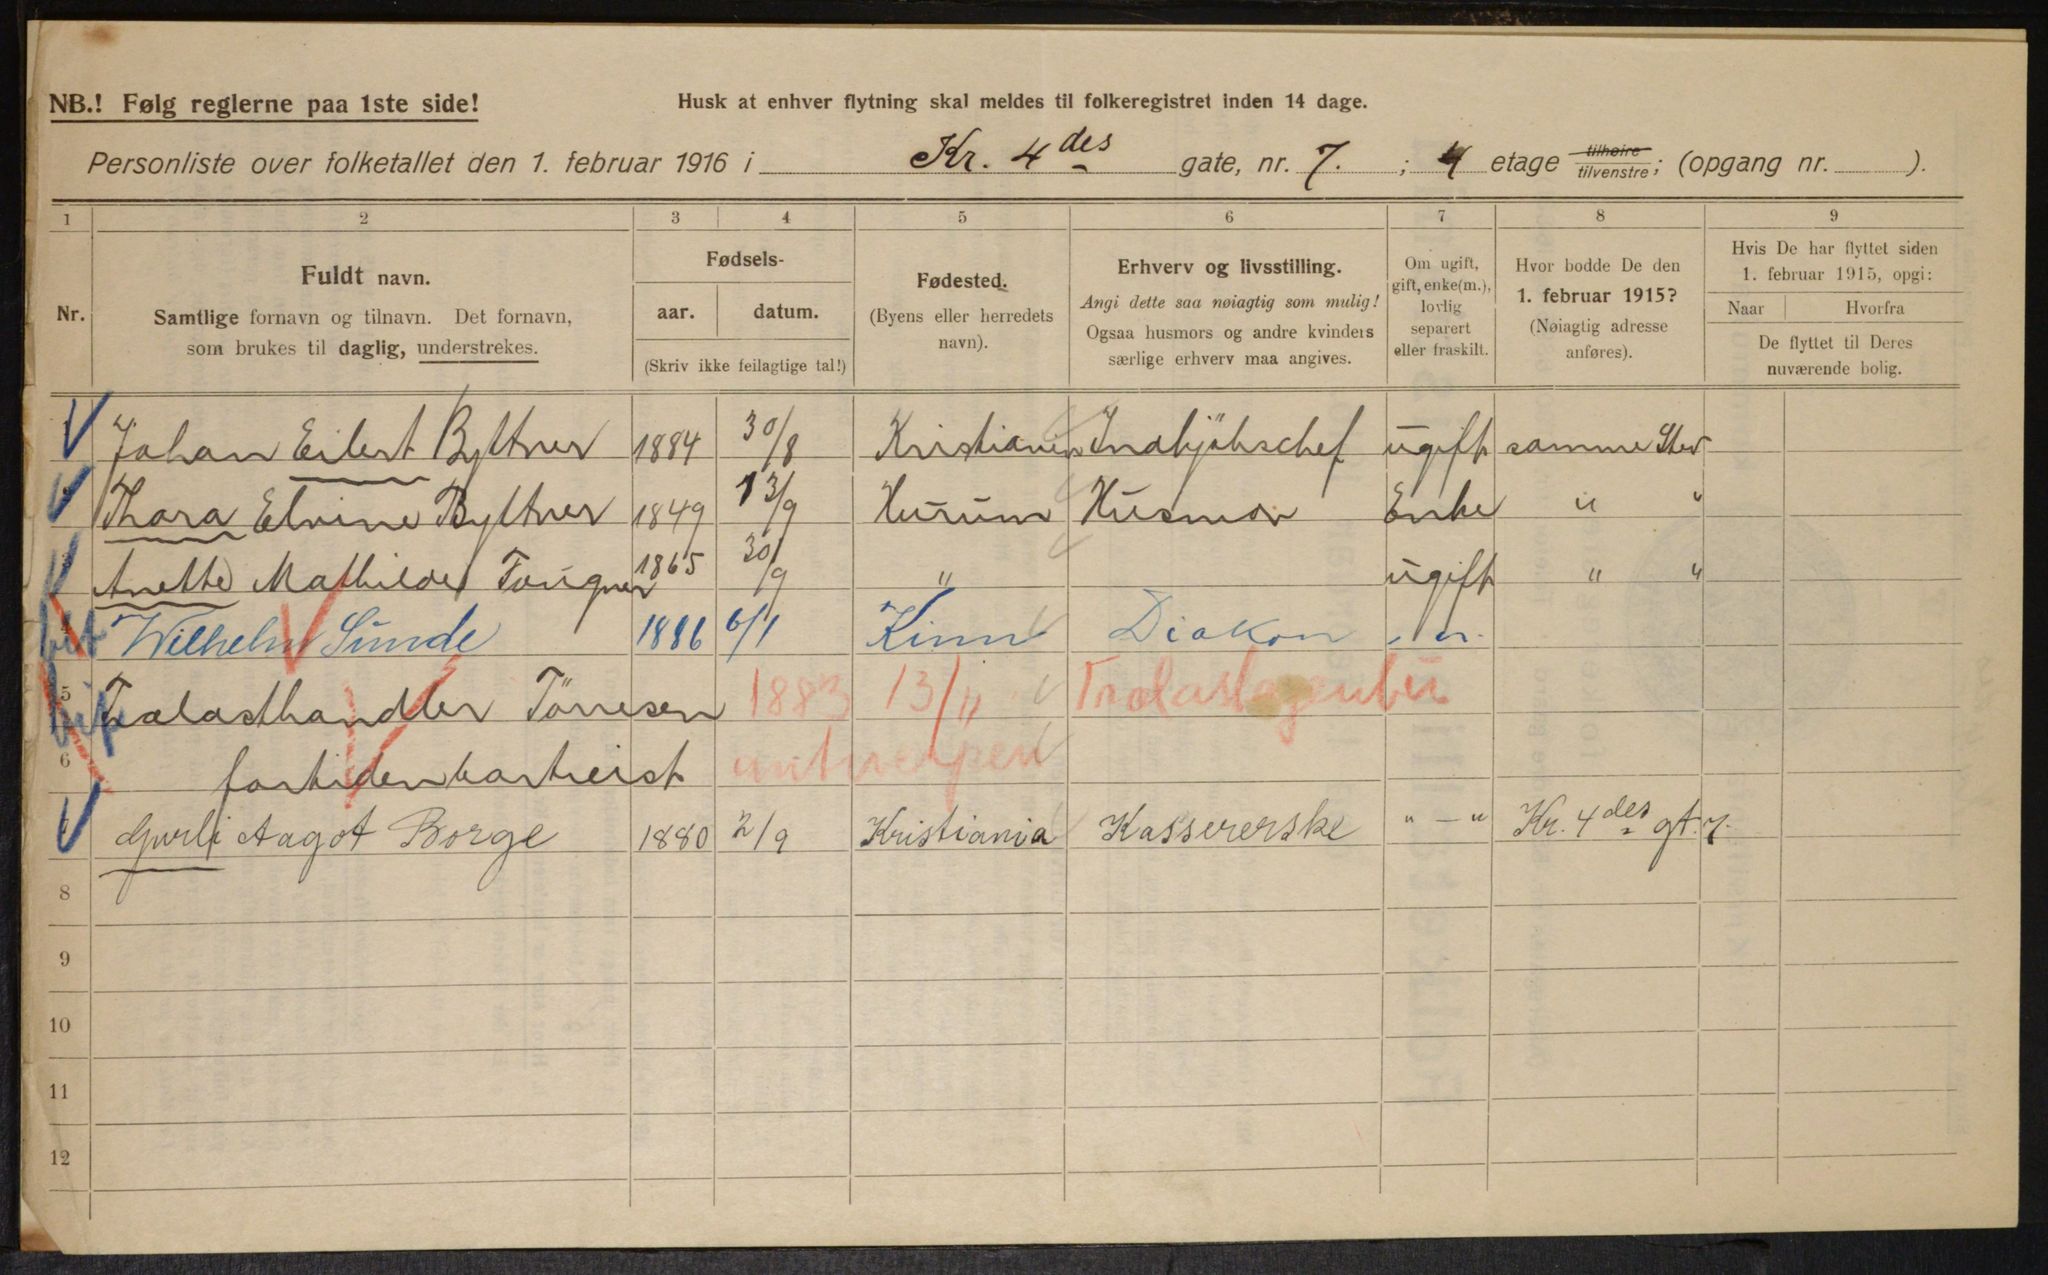 NB.! Følg reglerne paa 1ste side!
Husk at enhver flytning skal meldes til folkeregistret inden 14 dage.
Personliste over folketallet den 1. februar 1916 i Kr. 4des gate, nr. 7. ; 4 etage tilhøire tilvenstre; (opgang nr. ).
1 2 3 4 5 6 7 8 9
Nr.
Fuldt navn.
Samtlige fornavn og tilnavn. Det fornavn,
som brukes til daglig, understrekes.
Fødsels-
aar. datum.
(Skriv ikke feilagtige tal!)
Fødested.
(Byens eller herredets
navn).
Erhverv og livsstilling.
Angi dette saa nøiagtig som mulig!
Ogsaa husmors og andre kvinders
særlige erhverv maa angives.
Om ugift,
gift, enke(m.),
lovlig
separert
eller fraskilt.
Hvor bodde De den
1. februar 1915?
(Nøiagtig adresse
anføres).
Hvis De har flyttet siden
1. februar 1915, opgi:
Naar Hvorfra
De flyttet til Deres
nuværende bolig.
Johan Eilert Byttner 1884 30/8 Kristiania Indkjøbschef ugift samme Sted
Thora Elvine Byttner 1849 13/9 Hurum Husmor Enke " "
Anette Mathilde Tougner 1865 30/9 " ugift " "
Wilhelm Sunde 1886 6/1 Kinn Diakon
5 Trælasthandler Tönnesen 1883 13/11 Trælastagentur
6 fortiden bortreist antwerpen
Gurli Aagot Borge 1880 2/9 Kristiania Kassererske " — " Kr. 4des gt. 7.
8
9
10
11
12